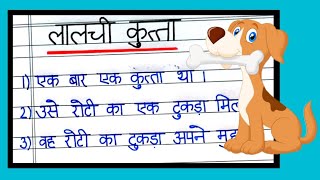 लालची कुत्ता
1) एक बार एक कुत्ता था ।
2) उसे रोटी का एक टुकड़ा
3) वह रोटी का टुकड़ा अपने